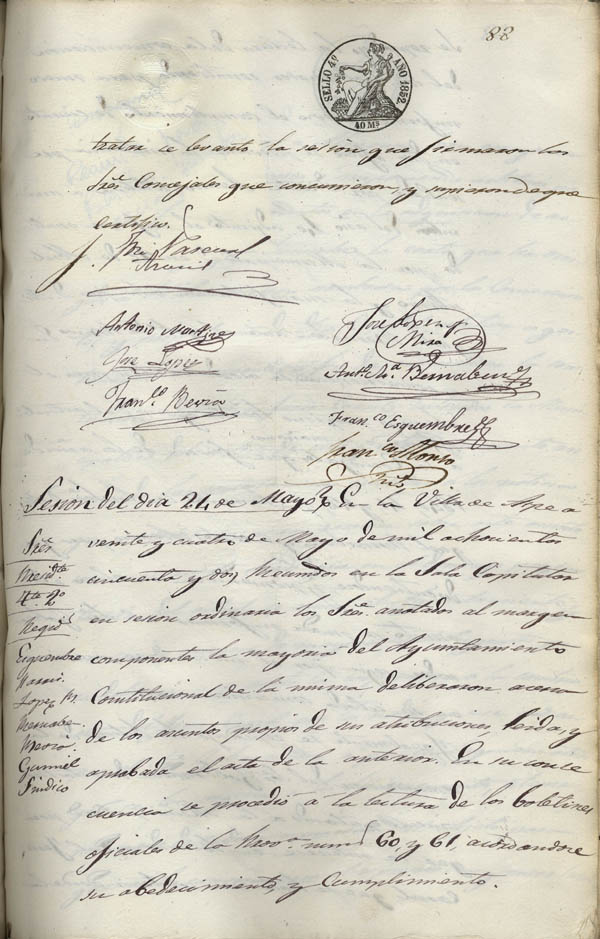 88
SELLO 4º AÑO 1852.
40 Mˢ
tratar se levantó la sesion que firmaron los
Sres. Concejales que concurrieron, y supieron de que
certifico.
Pascual
Antonio Martinez
José Lopez y
Mira
Jose Lopez
Antº Mª Bernabeu
Franco Berná
Franco Esquembre
Franco Alonso
Sesion del dia 24 de Mayo En la Villa de Aspe a
veinte y cuatro de Mayo de mil achocientos
cincuenta y dos Reunidos en la Sala Capitular
en sesion ordinaria los Sres. anotados al margen
componentes la mayoria del Ayuntamiento
Constitucional de la misma deliberaron acerca
de los asuntos propios de sus atribuciones, leida, y
aprobada el acta de la anterior. En su conse
cuencia se procedió a la lectura de los boletines
oficiales de la Provª numˢ 60, y 61, acordandose
su abedecimiento, y Cumplimiento.
Sres.
Presidte
Tte. 2º
Regidˢ
Esquembre
Lopez M.
Bernabeu
Berná
Gumiel
Sindico